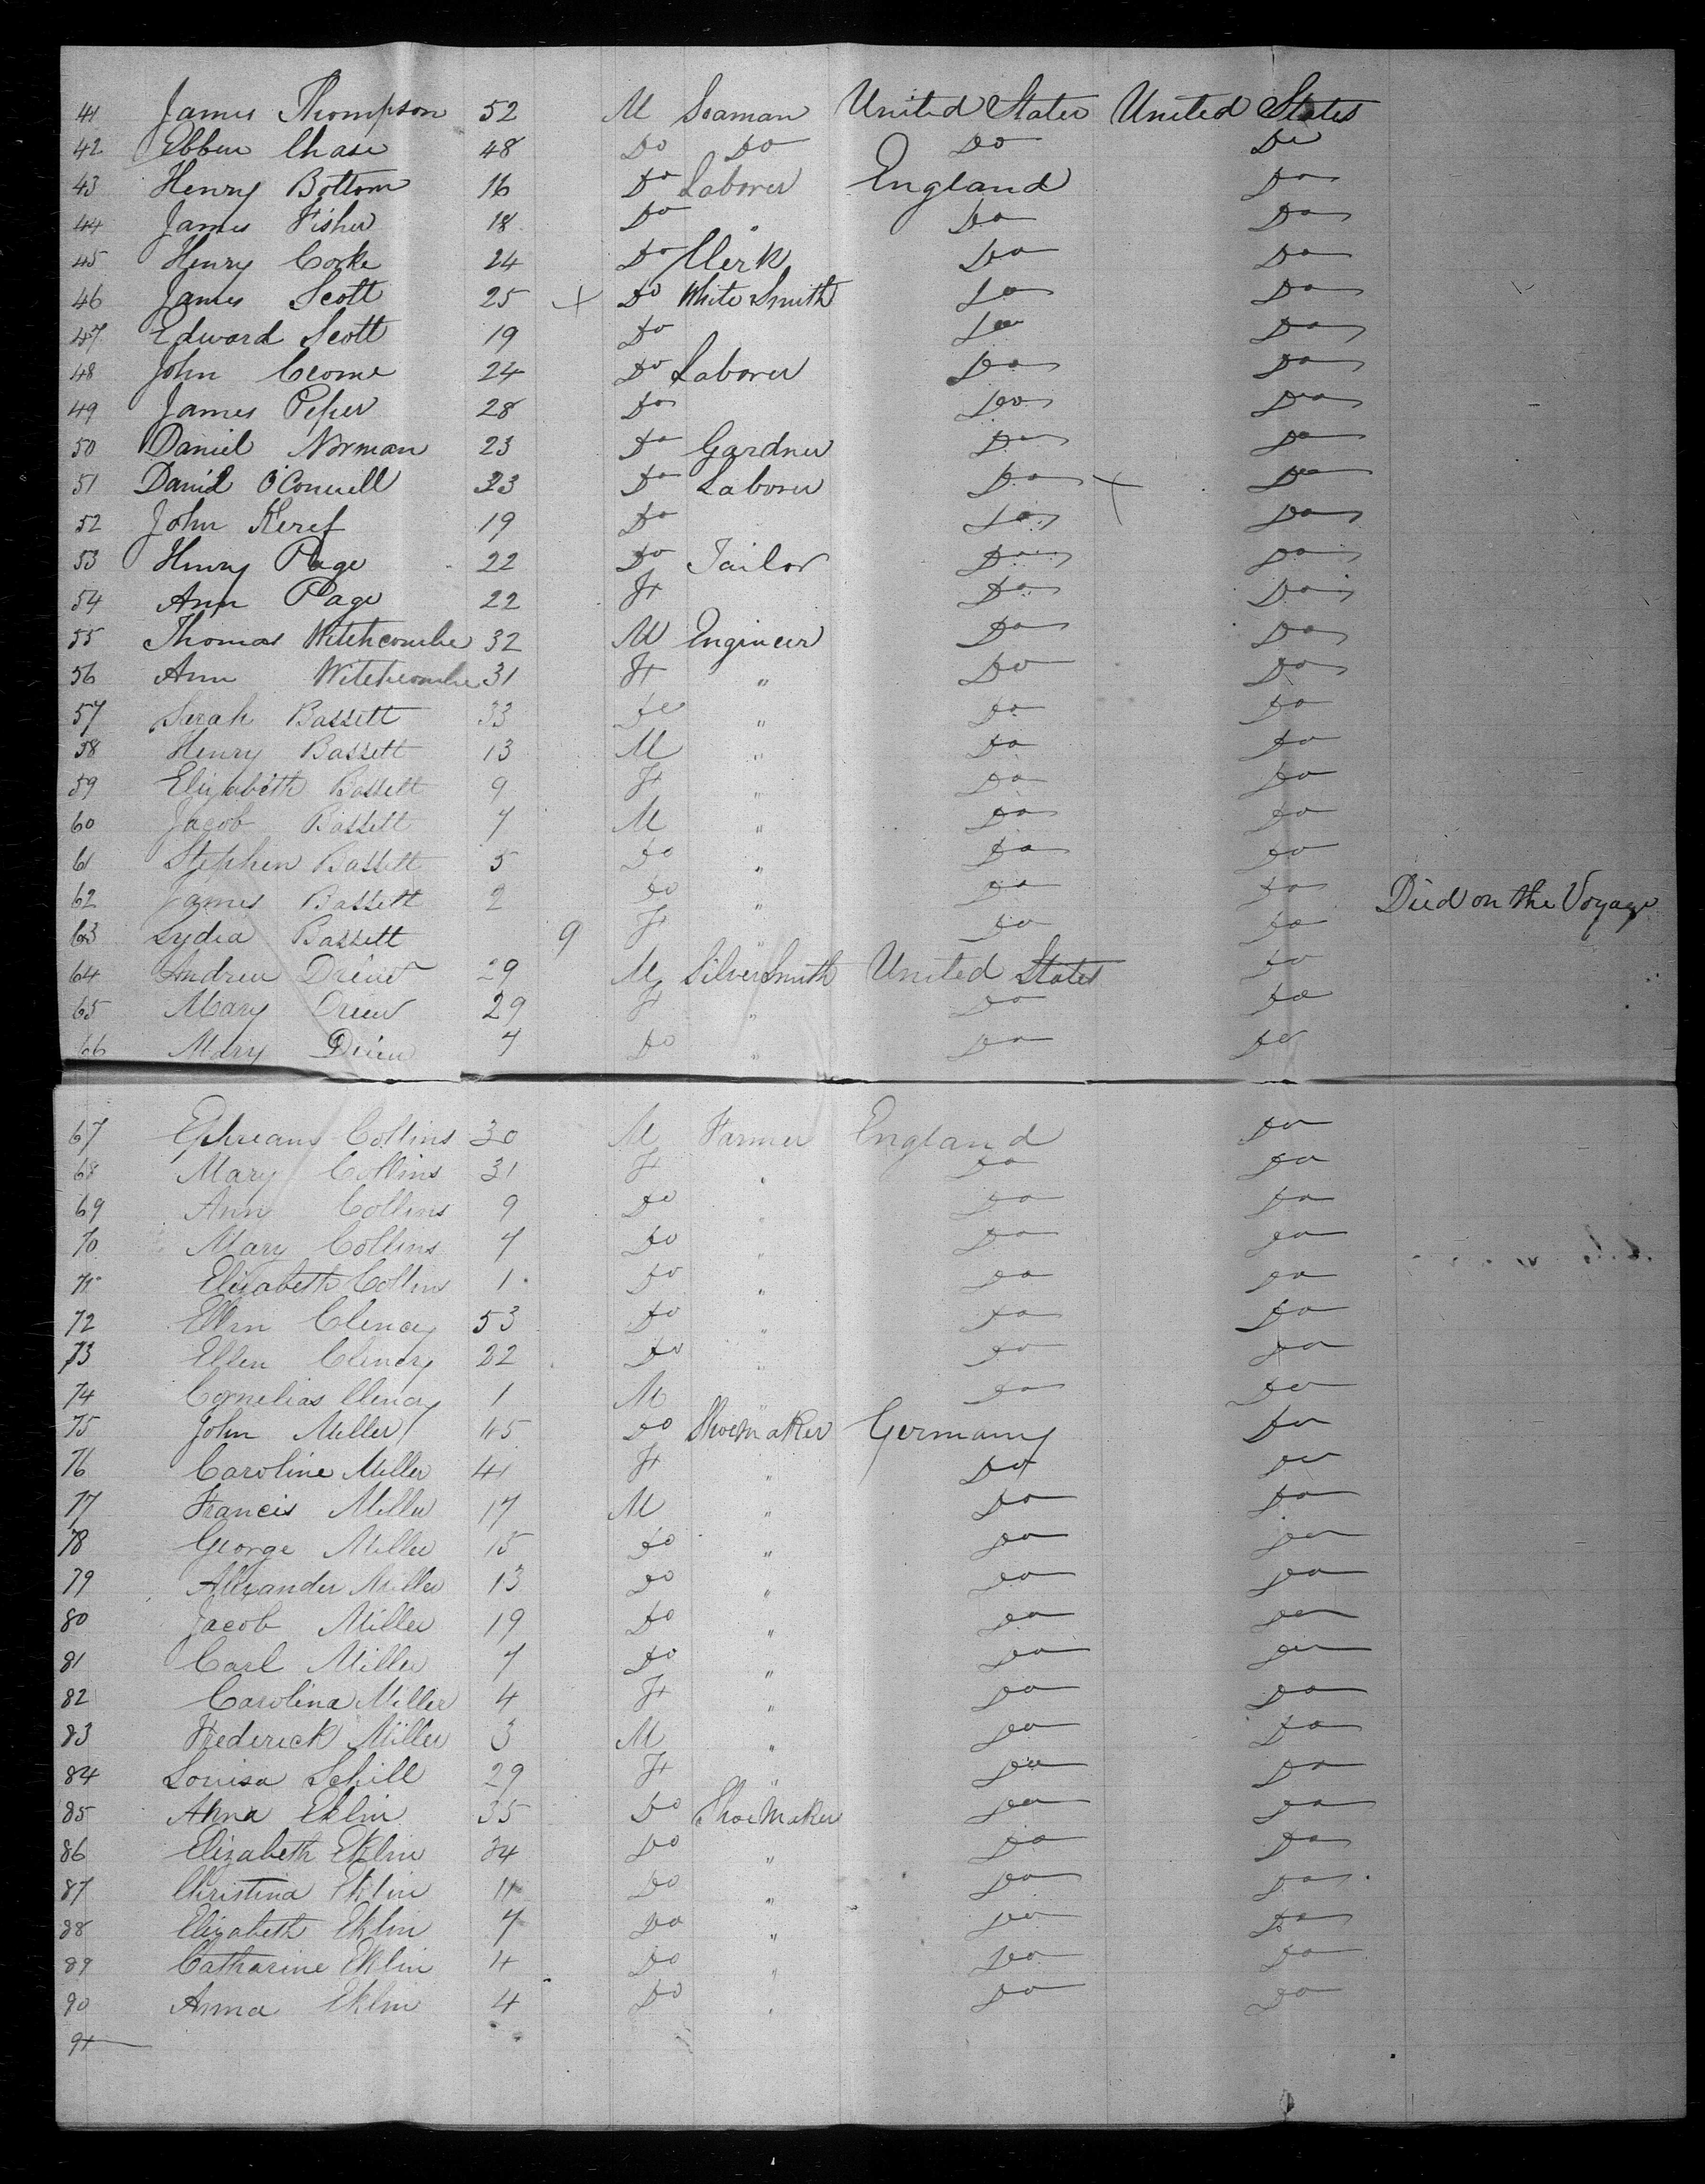 41 James Thompson 52 M Seaman United States United States
42 Ebben Chase 48 Do Do Do Do
43 Henry Bottom 16 Do Laborer England Do
44 James Fisher 18 Do " Do Do
45 Henry Cooke 24 Do Clerk Do Do
46 James Scott 25 + Do White Smith Do Do
47 Edward Scott 19 Do Do Do
48 John Crome 24 Do Laborer Do Do
49 James Peper 28 Do Do Do
50 Daniel Norman 23 Do Gardner Do Do
51 David O'Connell 23 Do Laborer Do + Do
52 John 19 Do Do Do
53 Henry Page 22 Do Tailor Do Do
54 Ann Page 22 F Do Do
55 Thomas Witchcombe 32 M Engineer Do Do
56 Ann Witchcombe 31 F " Do Do
57 Sarah Bassett 33 Do " Do Do
58 Henry Bassett 13 M " Do Do
59 Elizabeth Bassett 9 F " Do Do
60 Jacob Bassett 7 M " Do Do
61 Stephen Bassett 5 Do " Do Do
62 James Bassett 2 Do " Do Do Died on the Voyage
63 Lydia Bassett 9 F " Do Do
64 Andrew Drew 29 M SilverSmith United States Do
65 Mary Drew 29 F " Do Do
66 Mary Drew 7 Do " Do Do
67 Ephream Collins 30 M Farmer England Do
68 Mary Collins 31 F " Do Do
69 Ann Collins 9 Do " Do Do
70 Mary Collins 7 Do " Do Do
71 Elizabeth Collins 1 Do " Do Do
72 Ellen Clency 53 Do " Do Do
73 Ellen Clency 22 Do " Do Do
74 Cornelias Clency 1 M " Do Do
75 John Miller 45 Do Shoemaker Germany Do
76 Caroline Miller 41 F " Do Do
77 Francis Miller 17 M " Do Do
78 George Miller 15 Do " Do Do
79 Alexander Miller 13 Do " Do Do
80 Jacob Miller 19 Do " Do Do
81 Carl Miller 7 Do " Do Do
82 Carolina Miller 4 F " Do Do
83 Frederick Miller 3 M " Do Do
84 Louisa Schill 29 F " Do Do
85 Anna Eklin 35 Do Shoe Maker Do Do
86 Elizabeth Eklin 34 Do " Do Do
87 Christina Eklin 11 Do " Do Do
88 Elizabeth Eklin 7 Do " Do Do
89 Catharine Eklin 4 Do " Do Do
90 Anna Eklin 4 Do " Do Do
91